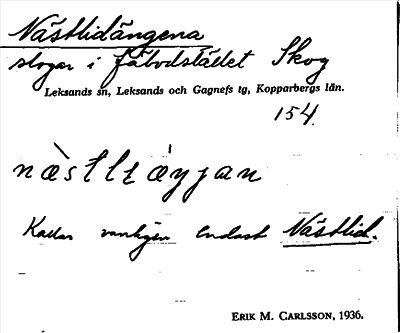 Nästlidängena
slogar i fäbodstället Skog
Leksands sn, Leksands och Gagnefs tg, Kopparbergs län.
154.
Kallas vanligen endast Nästlid.
ERIK M. CARLSSON, 1936.